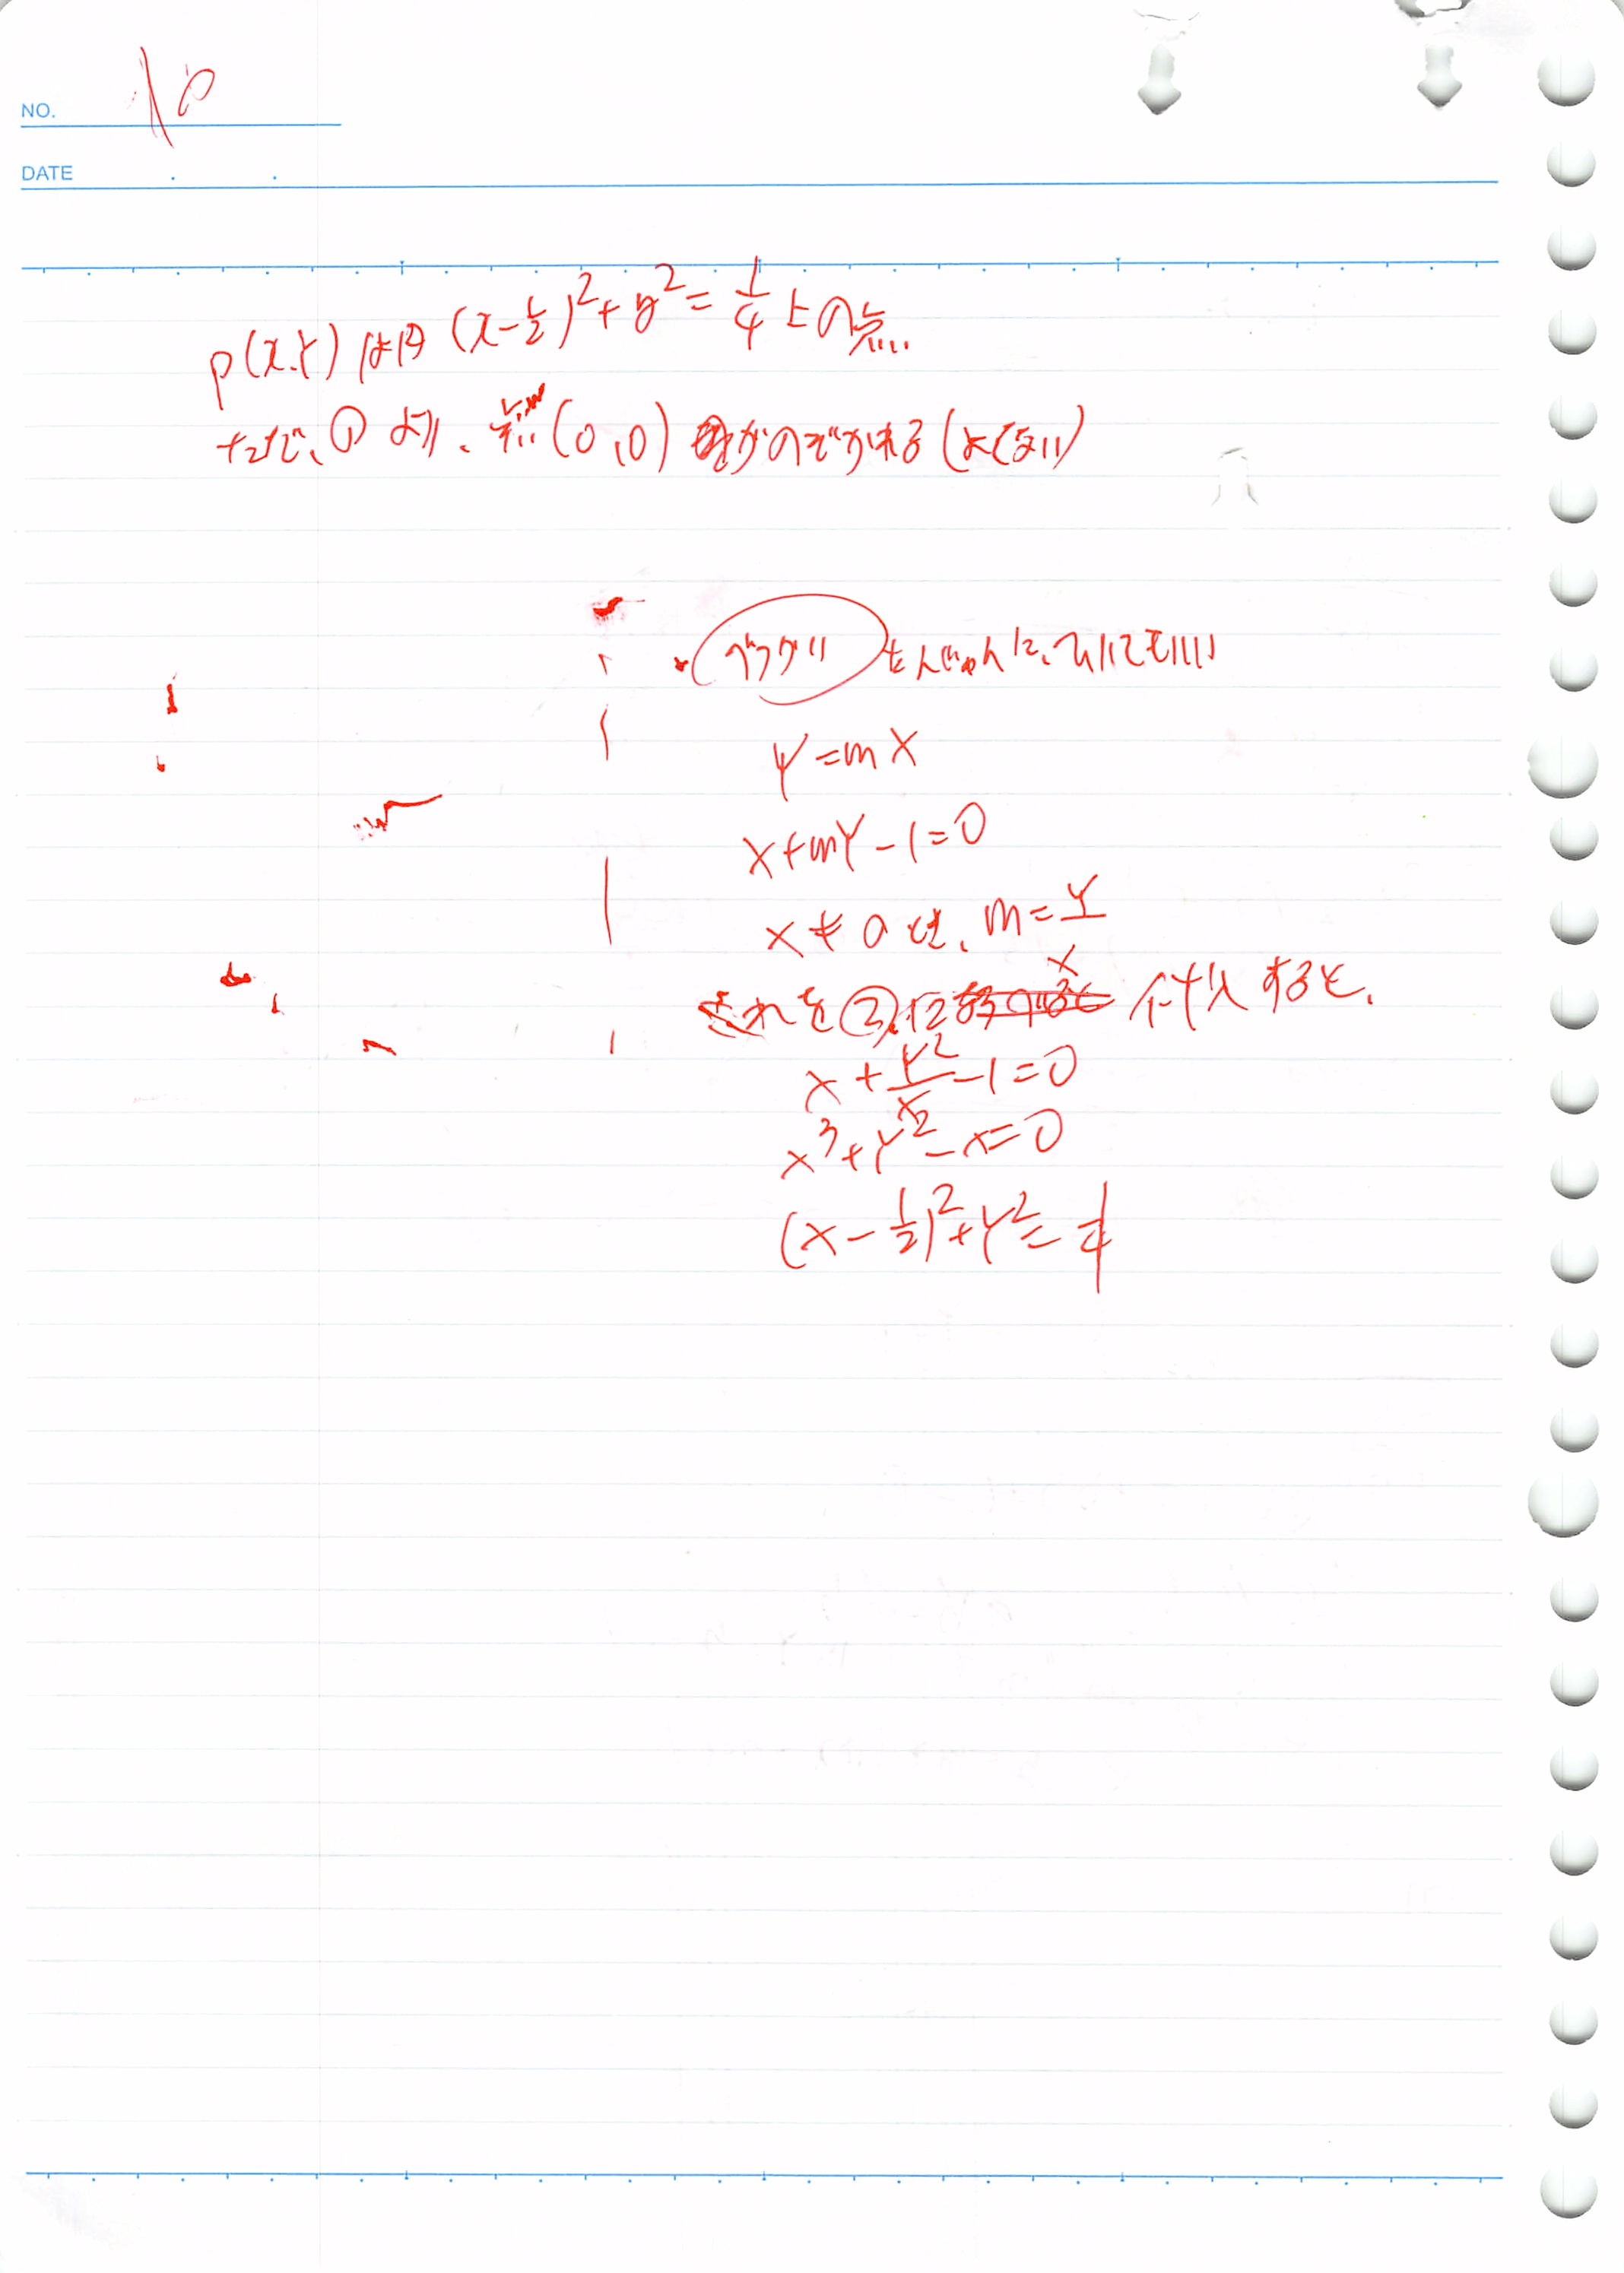 NO. 10
DATE
P(X,Y)は円 (x-1/2)²+y²=1/4 上の点
ただ、①より、点(0,0)がのぞかれる(よくない)
たんじゅんに、
Y=mX
X+mY-1=0
X≠0 は、m=Y/X
これを②に代入すると、
X+Y²/X-1=0
X³+Y²-X=0
(X-1/2)²+Y²=1/4